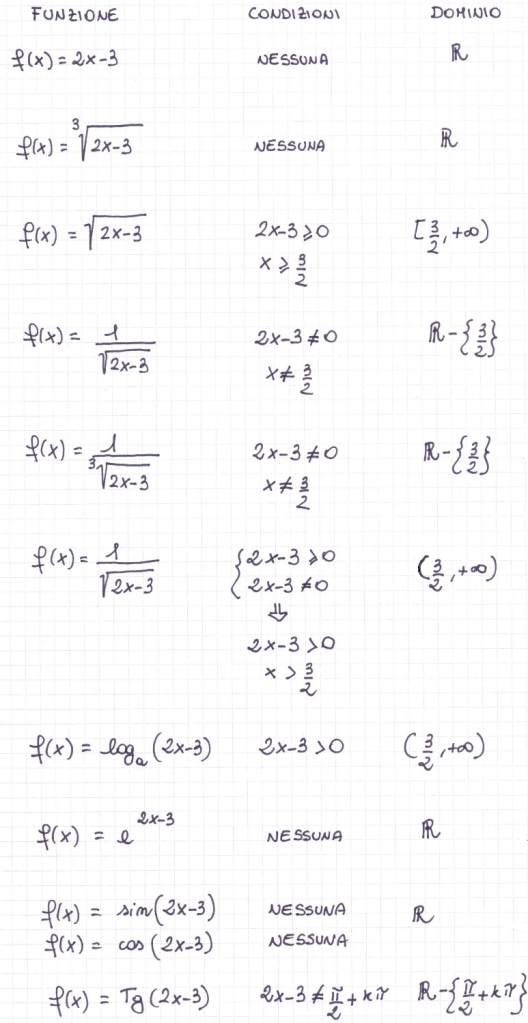 FUNZIONE CONDIZIONI DOMINIO
f(x) = 2x-3 NESSUNA ℝ
f(x) = ∛(2x-3) NESSUNA ℝ
f(x) = √(2x-3) 2x-3 ⩾ 0 [3/2, +∞)
x ⩾ 3/2
f(x) = 1/√(2x-3) 2x-3 ≠ 0 ℝ-{3/2}
x ≠ 3/2
f(x) = 1/∛(2x-3) 2x-3 ≠ 0 ℝ-{3/2}
x ≠ 3/2
f(x) = 1/√(2x-3) {2x-3 ⩾ 0 (3/2, +∞)
2x-3 ≠ 0
⇓
2x-3 > 0
x > 3/2
f(x) = logₐ(2x-3) 2x-3 > 0 (3/2, +∞)
f(x) = e^(2x-3) NESSUNA ℝ
f(x) = sin(2x-3) NESSUNA ℝ
f(x) = cos(2x-3) NESSUNA
f(x) = Tg(2x-3) 2x-3 ≠ π/2 + kπ ℝ-{π/2 + kπ}